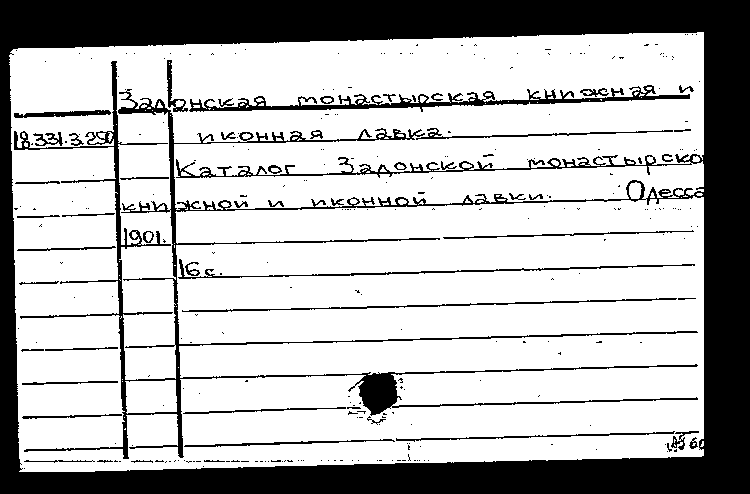 Задонская монастырская книжная и
18.331.3.250 иконная лавка.
Каталог Задонской монастырско
книжной и иконной лавки. Одесса
1901.
16 с.